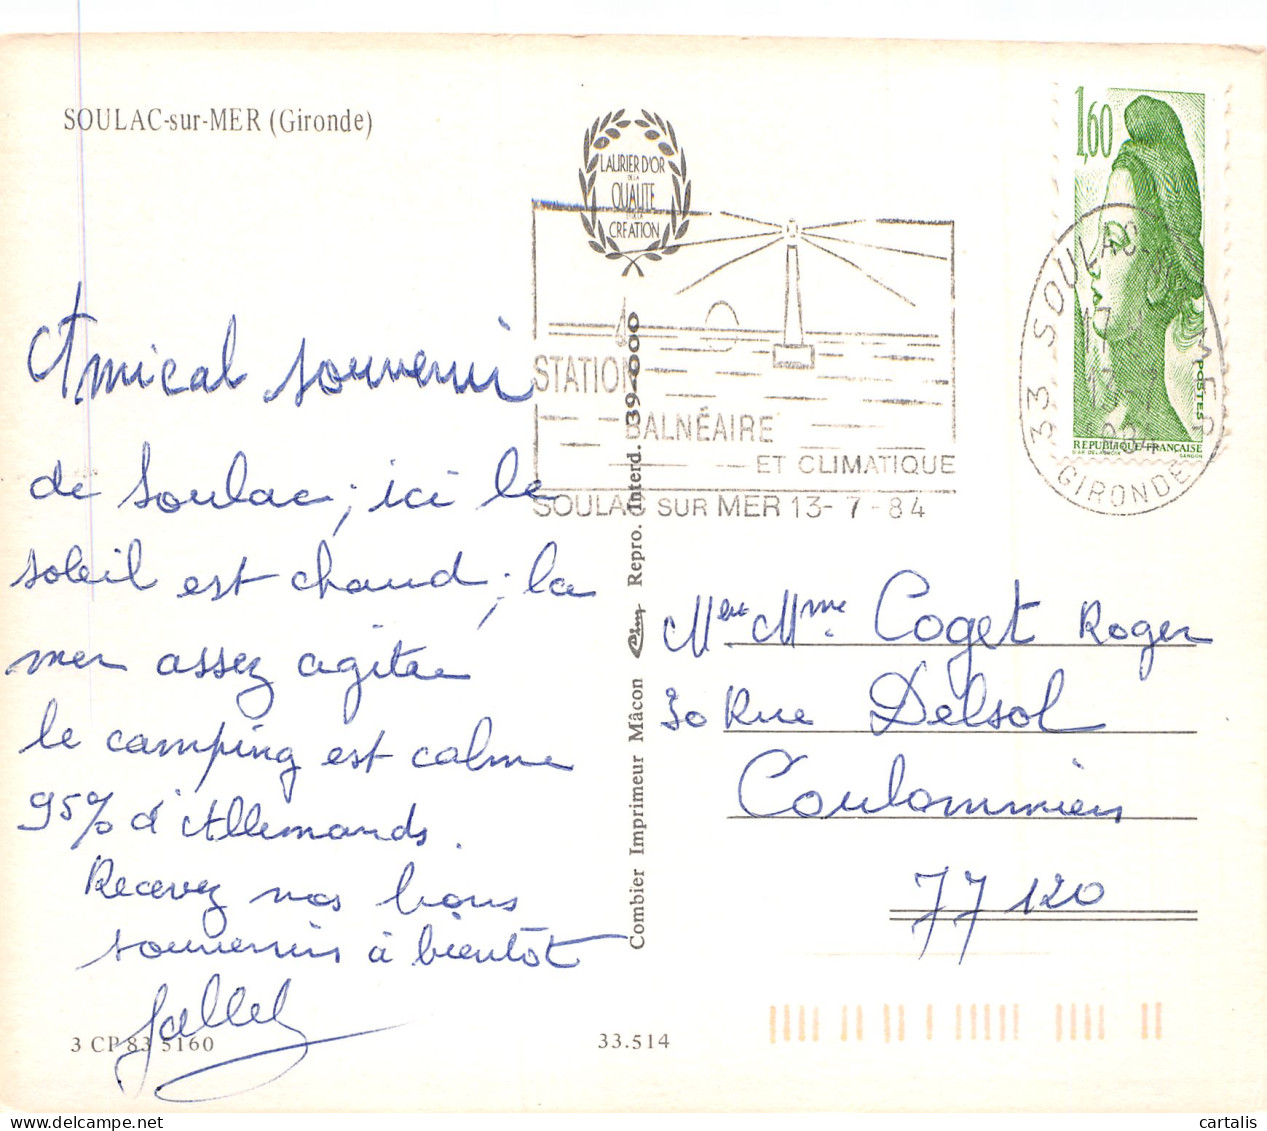 SOULAC-sur-MER (Gironde)
LAURIER D'OR
DE LA
QUALITE
ET DE LA
CREATION
1,60
POSTES
REPUBLIQUE FRANÇAISE
D'AP. DELACROIX GANDON
33 SOULAC-S-MER
17 H
13-7
1984
GIRONDE
STATION
BALNÉAIRE
ET CLIMATIQUE
SOULAC SUR MER 13-7-84
Amical souvenir
de Soulac; ici le
soleil est chaud; la
mer assez agitée
le camping est calme
95% d'Allemands.
Recevez nos bons
souvenirs à bientôt
Combier Imprimeur Mâcon Cim Repro. Interd. 39-000
M et Mme Coget Roger
30 Rue Delsol
Coulommiers
77120
3 CP 83 5160
33.514
cartalis